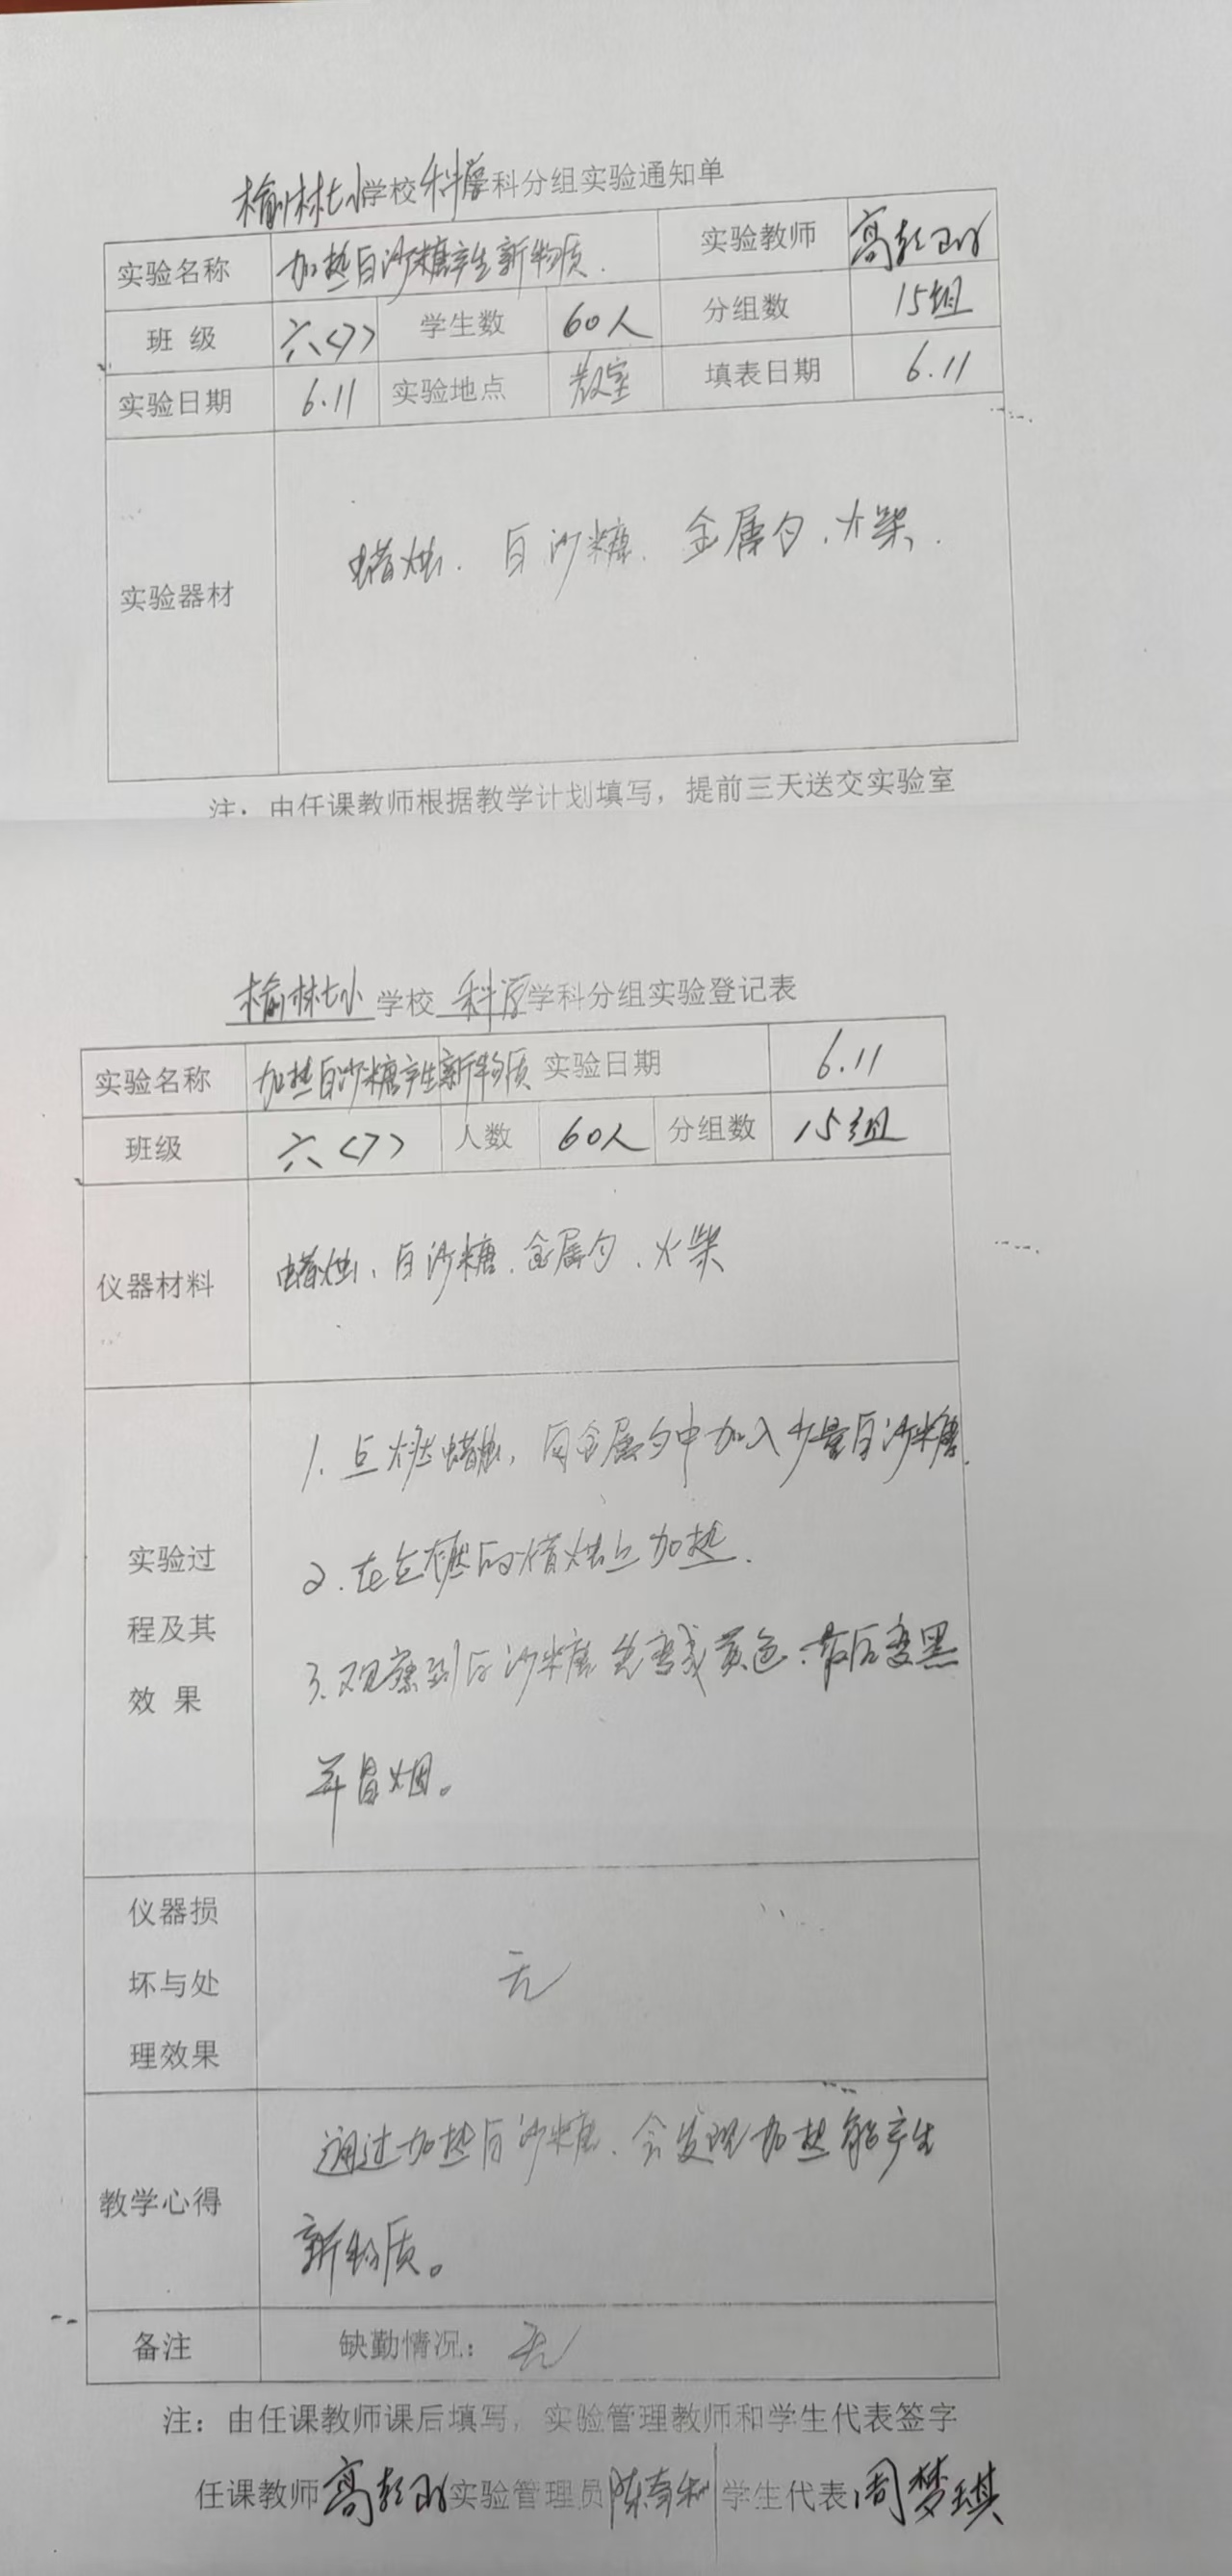 榆林七小学校科学科分组实验通知单
实验名称 加热白沙糖产生新物质. 实验教师 高
班 级 六<7> 学生数 60人 分组数 15组
实验日期 6.11 实验地点 教室 填表日期 6.11
实验器材 蜡烛. 白沙糖. 金属勺、火柴.
注：由任课教师根据教学计划填写，提前三天送交实验室
榆林七小 学校 科学 学科分组实验登记表
实验名称 加热白沙糖产生新物质 实验日期 6.11
班级 六<7> 人数 60人 分组数 15组
仪器材料 蜡烛、白沙糖.金属勺、火柴
实验过程及其效 果
1. 点燃蜡烛，向金属勺中加入少量白沙糖.
2. 在点燃的蜡烛上加热.
3. 观察到白沙糖先变成黄色.最后变黑
并冒烟。
仪器损坏与处理效果 无
教学心得 通过加热白沙糖、会发现加热能产生
新物质。
备注 缺勤情况：无
注：由任课教师课后填写，实验管理教师和学生代表签字
任课教师 高 实验管理员 陈 学生代表 周梦琪